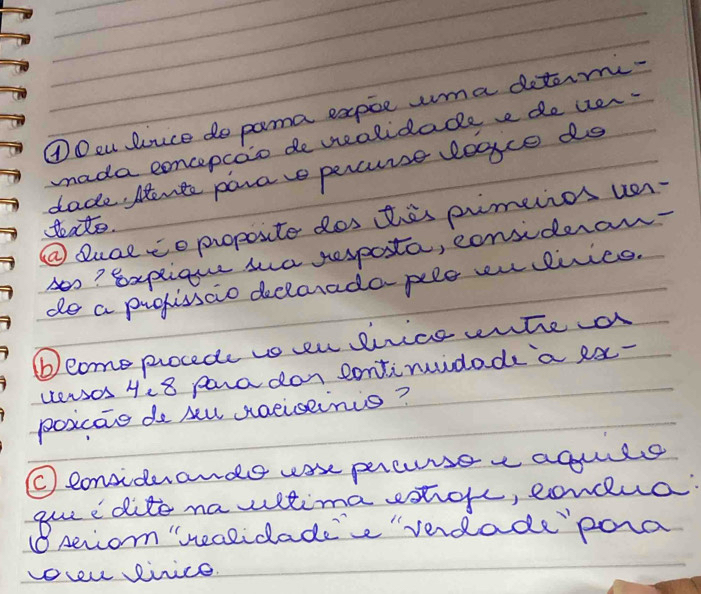 ① O eu lírico do poema expõe uma determi-
nada concepção de realidade e de ver-
dade. Atente para o percurso lógico do
texto.
ⓐ Qual é o proposito dos três primeiros ver-
sos? Explique sua resposta, consideran-
do a profissão declarada pelo eu lírico.
ⓑ como procede o eu lírico entre os
versos 4 e 8 para dar continuidade à ex-
posição de seu raciocínio?
ⓒ considerando esse percurso e aquilo
que é dito na ultima estrofe, conclua:
O seriam "realidade" e "verdade" para
o eu lírico.